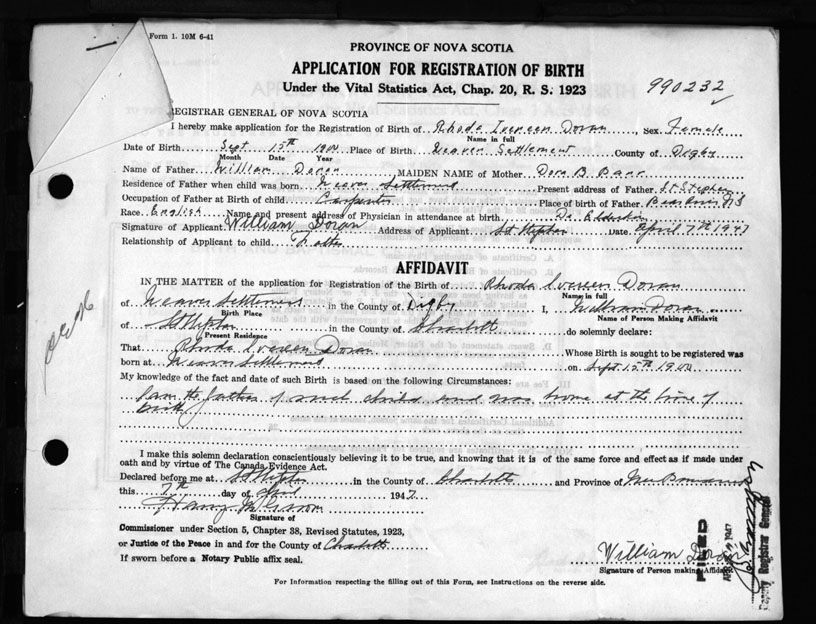 Form 1. 10M 6-41
PROVINCE OF NOVA SCOTIA
APPLICATION FOR REGISTRATION OF BIRTH
Under the Vital Statistics Act, Chap. 20, R. S. 1923
990232
REGISTRAR GENERAL OF NOVA SCOTIA
I hereby make application for the Registration of Birth of Rhoda Ivereen Doran, Sex Female
Name in full
Date of Birth Sept 15th 1900 Place of Birth Weaver Settlement County of Digby
Month Date Year
Name of Father William Doran, MAIDEN NAME of Mother Dora B
Residence of Father when child was born Weaver Settlement Present address of Father St. Stephen
Occupation of Father at Birth of child Carpenter Place of birth of Father Bear River NS
Race English Name and present address of Physician in attendance at birth Dr.
Signature of Applicant William Doran Address of Applicant St Stephen Date April 7th 1947
Relationship of Applicant to child Father
AFFIDAVIT
IN THE MATTER of the application for Registration of the Birth of Rhoda Ivereen Doran
Name in full
of Weaver Settlement in the County of Digby I, William Doran
Birth Place Name of Person Making Affidavit
of St Stephen in the County of Charlotte do solemnly declare:
Present Residence
That Rhoda Ivereen Doran Whose Birth is sought to be registered was
born at Weaver Settlement on Sept 15th 1900
My knowledge of the fact and date of such Birth is based on the following Circumstances:
I am the father of such child and was home at the time of
birth
I make this solemn declaration conscientiously believing it to be true, and knowing that it is of the same force and effect as if made under
oath and by virtue of The Canada Evidence Act.
Declared before me at St Stephen in the County of Charlotte and Province of New Brunswick
this 7th day of April 1947
Harry
Signature of
Commissioner under Section 5, Chapter 38, Revised Statutes, 1923,
or Justice of the Peace in and for the County of Charlotte
If sworn before a Notary Public affix seal.
William Doran
Signature of Person making Affidavit
FILED
1947
Deputy Registrar General
For Information respecting the filling out of this Form, see Instructions on the reverse side.